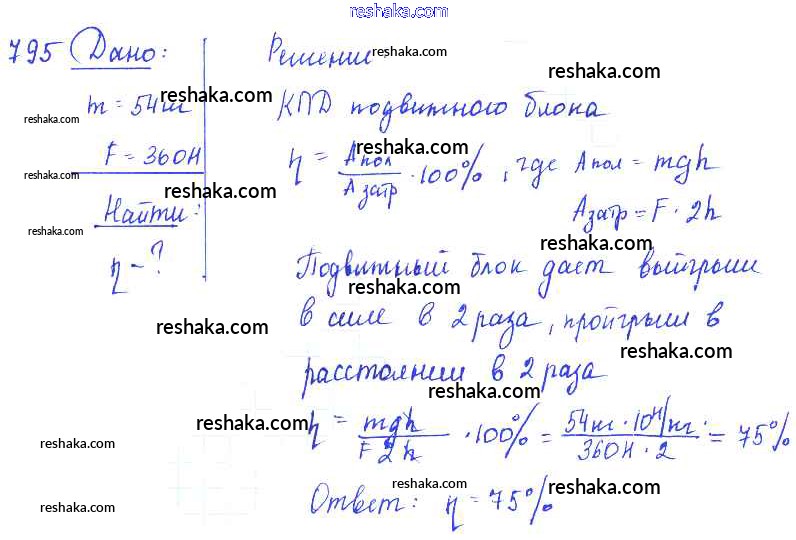 reshaka.com
795 Дано:
m = 54кг
F = 360Н
Найти:
η - ?
Решение
КПД подвижного блока
η = Aпол / Aзатр · 100%, где Aпол = mgh
Aзатр = F · 2h
Подвижный блок дает выигрыш
в силе в 2 раза, пройгрыш в
расстоянии в 2 раза
η = mgh / F2h · 100% = 54кг · 10Н/кг / 360Н · 2 = 75%
Ответ: η = 75%
reshaka.com
reshaka.com
reshaka.com
reshaka.com
reshaka.com
reshaka.com
reshaka.com
reshaka.com
reshaka.com
reshaka.com
reshaka.com
reshaka.com
reshaka.com
reshaka.com
reshaka.com
reshaka.com
reshaka.com
reshaka.com
reshaka.com